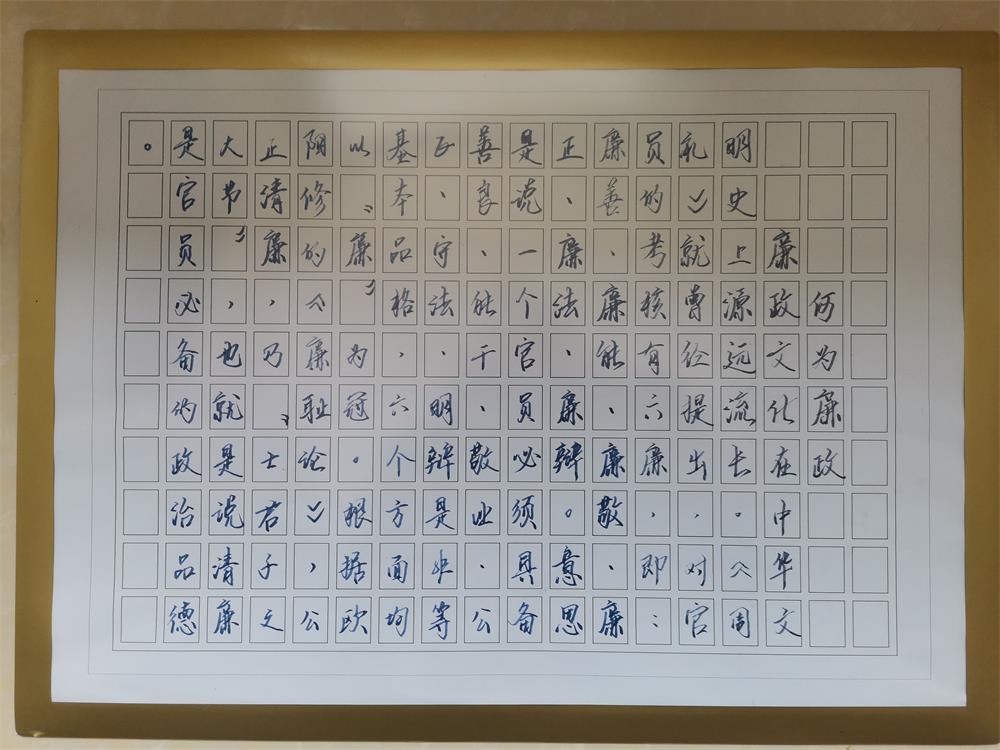 何为廉政
廉政文化在中华文
明史上源远流长。《周
礼》就曾经提出，对官
员的考核有六廉，即：
廉善、廉能、廉敬、廉
正、廉法、廉辩。意思
是说一个官员必须具备
善良、能干、敬业、公
正、守法、明辩是非等
基本品格，六个方面均
以“廉”为冠。根据欧
阳修的《廉耻论》，公
正清廉，乃“士君子立
大节”，也就是说清廉
是官员必备的政治品德
。